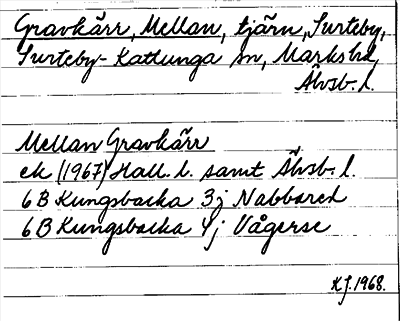 Gravkärr, Mellan, tjärn, Surteby,
Surteby-Kattunga sn, Marks hd,
Älvsb. l.
Mellan Gravkärr
ek (1967) Hall. l. samt Älvsb. l.
6B Kungsbacka 3j Nabbared
6B Kungsbacka 4j Vågerse
KJ. 1968.